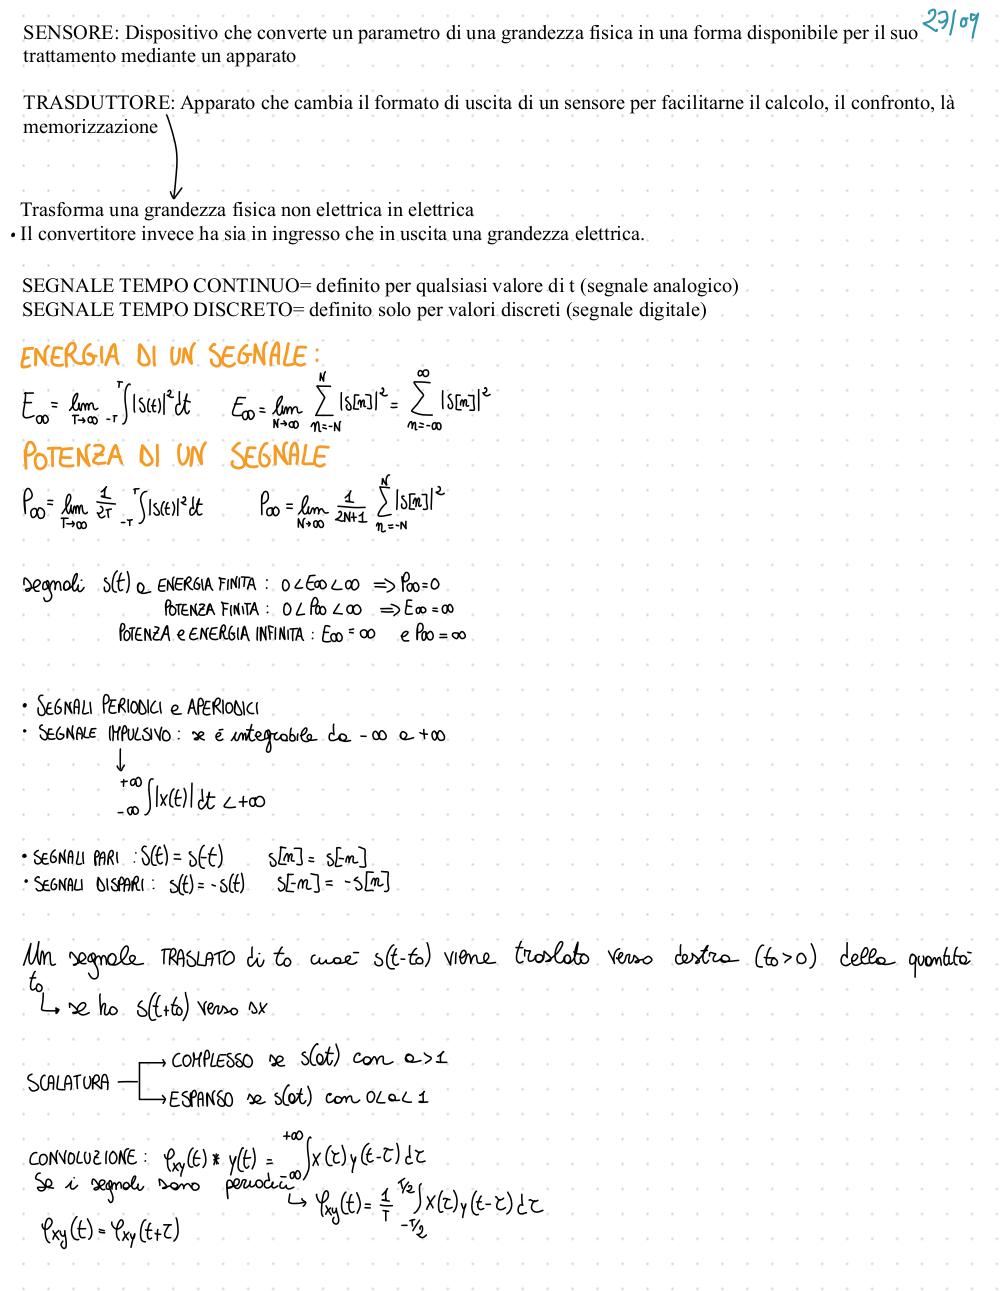 27/09
SENSORE: Dispositivo che converte un parametro di una grandezza fisica in una forma disponibile per il suo
trattamento mediante un apparato
TRASDUTTORE: Apparato che cambia il formato di uscita di un sensore per facilitarne il calcolo, il confronto, là
memorizzazione
Trasforma una grandezza fisica non elettrica in elettrica
• Il convertitore invece ha sia in ingresso che in uscita una grandezza elettrica.
SEGNALE TEMPO CONTINUO= definito per qualsiasi valore di t (segnale analogico)
SEGNALE TEMPO DISCRETO= definito solo per valori discreti (segnale digitale)
ENERGIA DI UN SEGNALE:
E∞ = lim T→∞ -T∫T |s(t)|² dt   E∞ = lim N→∞ ∑ n=-N N |s[n]|² = ∑ n=-∞ ∞ |s[n]|²
POTENZA DI UN SEGNALE
P∞ = lim T→∞ 1/2T -T∫T |s(t)|² dt   P∞ = lim N→∞ 1/2N+1 ∑ n=-N N |s[n]|²
segnali s(t) a ENERGIA FINITA: 0<E∞<∞ ⇒ P∞=0
POTENZA FINITA: 0<P∞<∞ ⇒ E∞=∞
POTENZA e ENERGIA INFINITA: E∞=∞ e P∞=∞
• SEGNALI PERIODICI e APERIODICI
• SEGNALE IMPULSIVO: se é integrabile da -∞ a +∞
↓
-∞∫+∞ |x(t)| dt < +∞
• SEGNALI PARI: s(t) = s(-t)   s[n] = s[-n]
• SEGNALI DISPARI: s(t) = -s(t)   s[-n] = -s[n]
Un segnale TRASLATO di to cioè s(t-to) viene traslato verso destra (to>0) della quantità
to
↳ se ho s(t+to) verso sx
SCALATURA → COMPLESSO se s(at) con a>1
→ ESPANSO se s(at) con 0<a<1
CONVOLUZIONE: φxy(t) * y(t) = -∞∫+∞ x(τ) y(t-τ) dτ
Se i segnali sono periodici
↳ φxy(t) = 1/T -T/2∫T/2 x(τ) y(t-τ) dτ
φxy(t) = φxy(t+τ)